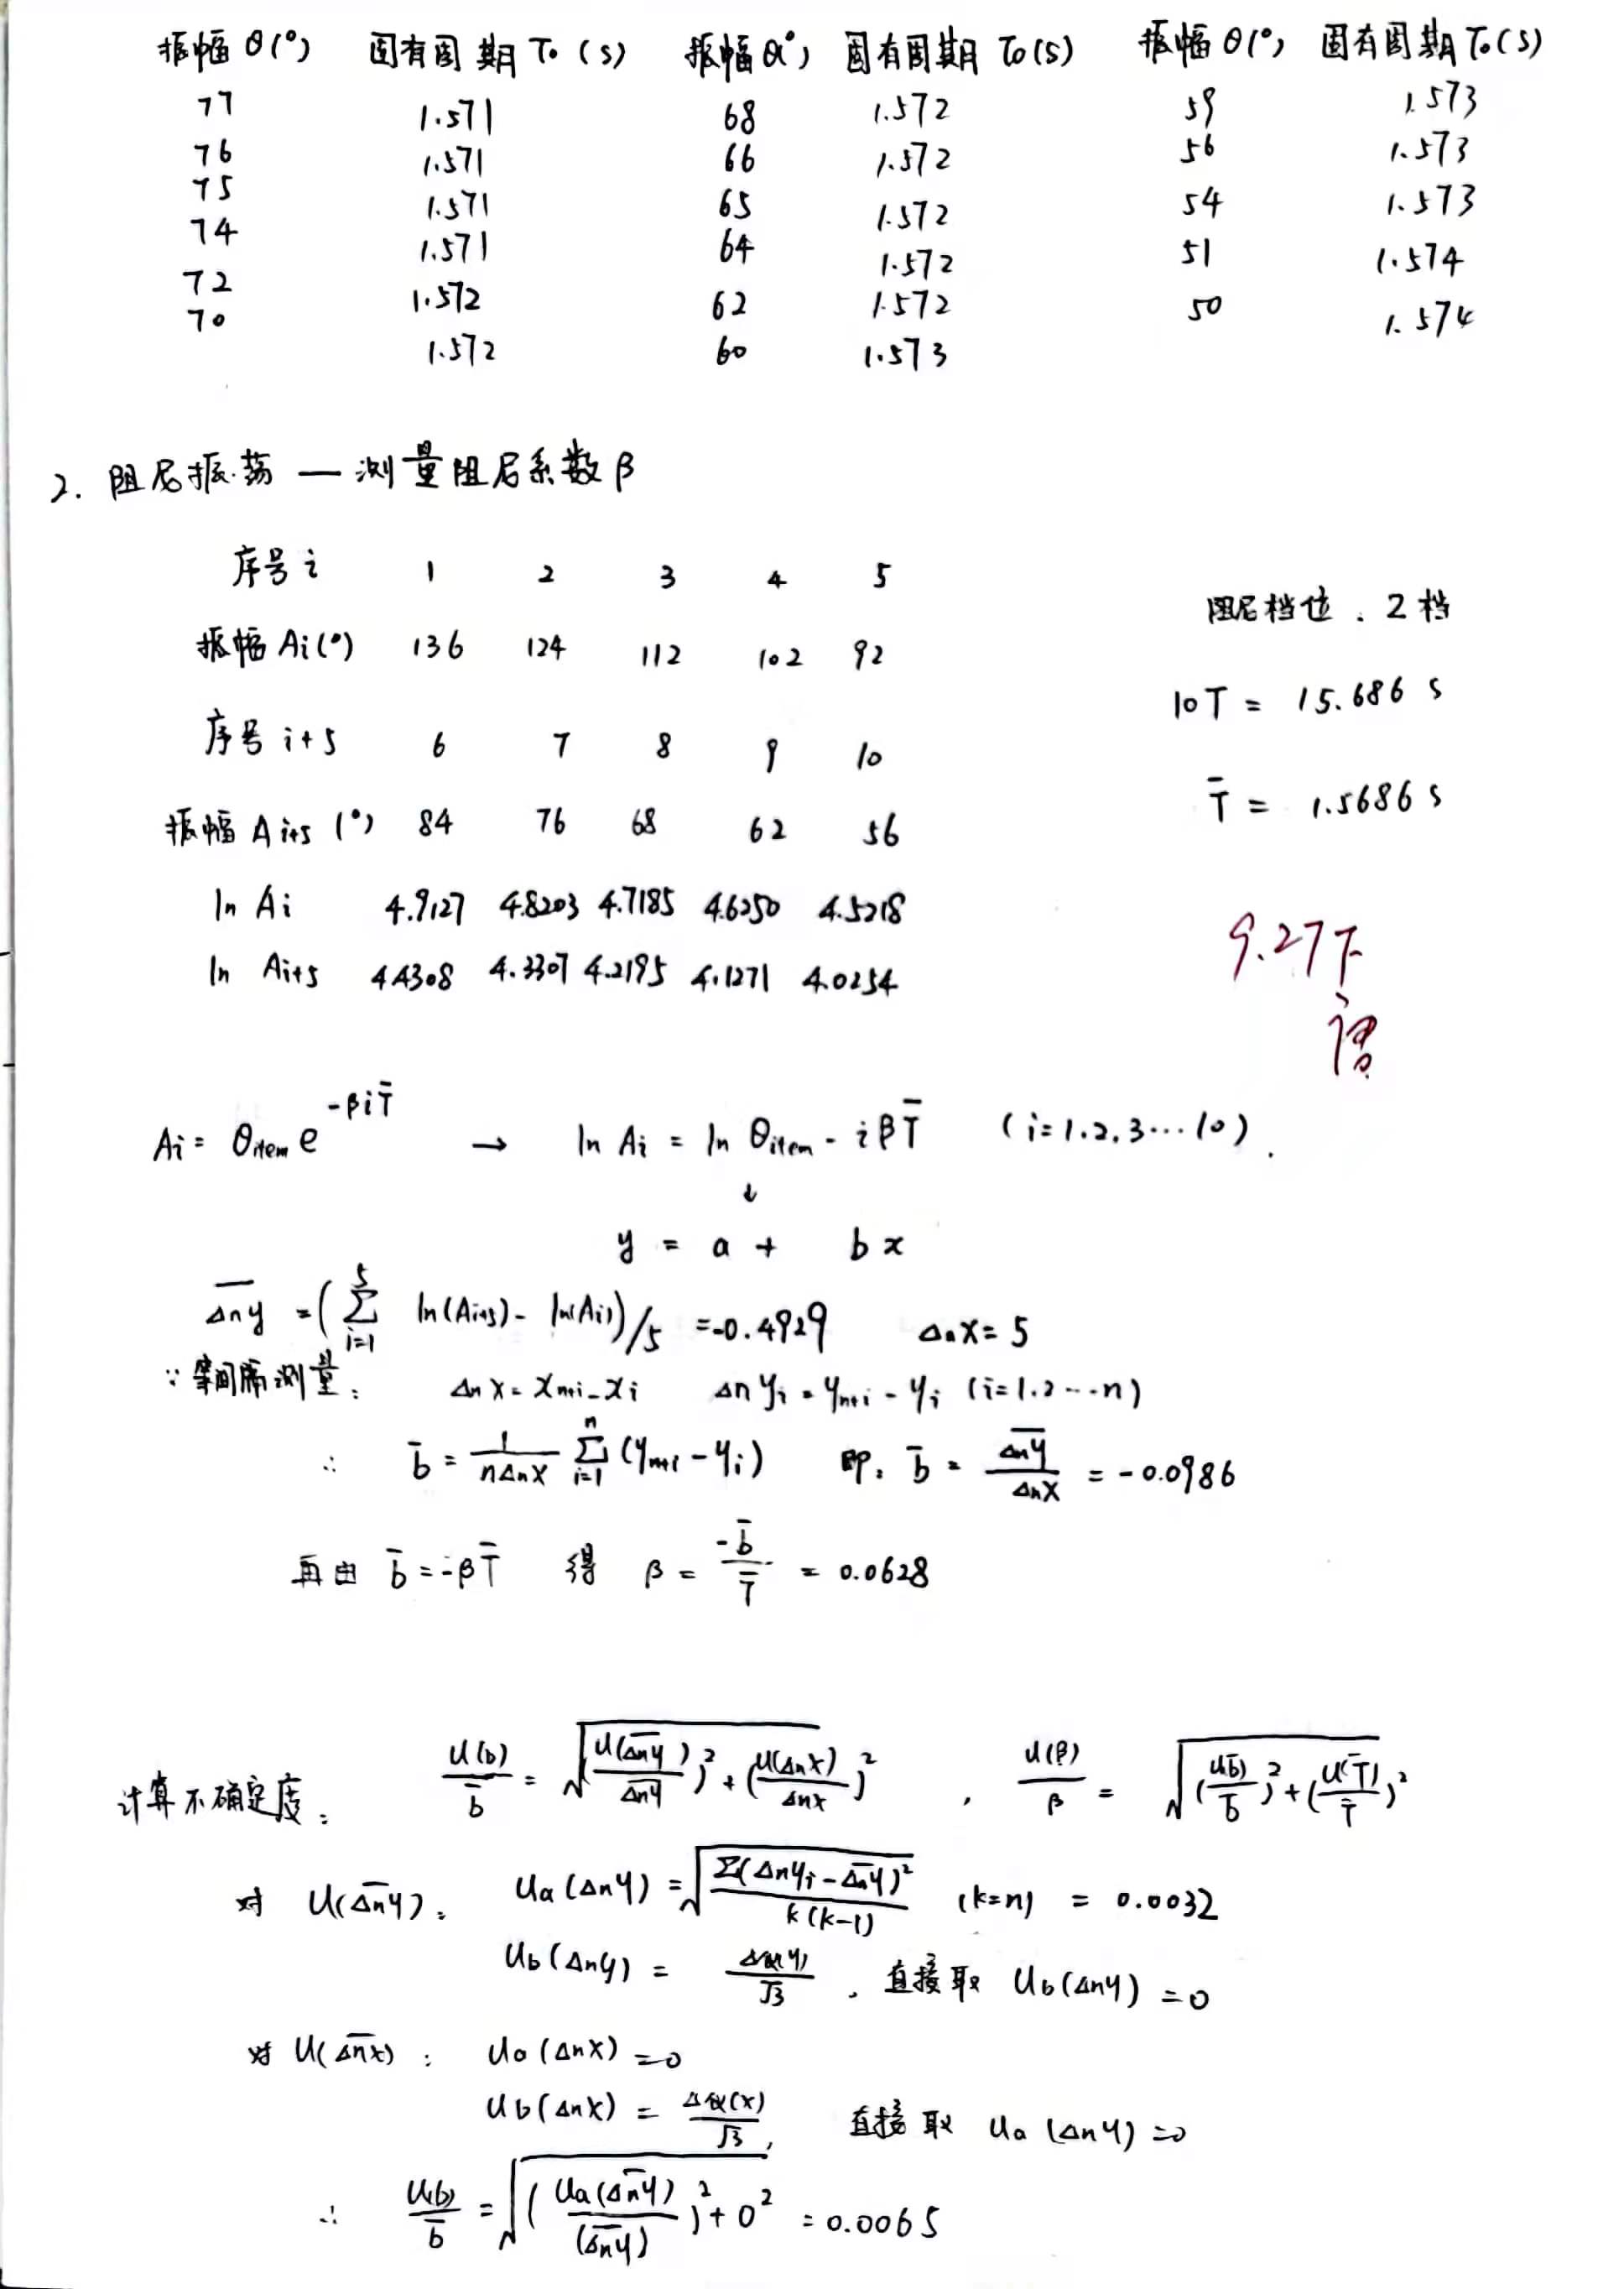 振幅 θ(°) 固有周期 T₀ (s) 振幅 θ(°) 固有周期 T₀(s) 振幅 θ(°) 固有周期 T₀(s)
77 1.571 68 1.572 59 1.573
76 1.571 66 1.572 56 1.573
75 1.571 65 1.572 54 1.573
74 1.571 64 1.572 51 1.574
72 1.572 62 1.572 50 1.574
70 1.572 60 1.573
2. 阻尼振荡 — 测量阻尼系数 β
序号 i 1 2 3 4 5
阻尼档位: 2档
振幅 Ai(°) 136 124 112 102 92
10T = 15.686 s
序号 i+5 6 7 8 9 10
T̄ = 1.5686 s
振幅 Ai+5 (°) 84 76 68 62 56
ln Ai 4.9127 4.8203 4.7185 4.6250 4.5218
9.27下
ln Ai+5 4.4308 4.3307 4.2195 4.1271 4.0254
Ai = θitem e^(-βiT̄) → ln Ai = ln θitem - iβT̄ (i=1.2.3…10).
↓
y = a + bx
Δny‾ = (∑_{i=1}^{5} ln(Ai+5) - ln(Ai))/5 = -0.4929 ΔnX = 5
∵ 等间隔测量: ΔnX = Xn+i - Xi Δnyi = yn+i - yi (i=1.2…n)
∴ b̄ = 1/(nΔnX) ∑_{i=1}^{n} (yn+i - yi) 即: b̄ = Δny‾/ΔnX = -0.0986
再由 b̄ = -βT̄ 得 β = -b̄/T̄ = 0.0628
计算不确定度: U(b)/b̄ = √((U(Δny‾)/Δny‾)² + (U(ΔnX)/ΔnX)²) , U(β)/β = √((U(b̄)/b̄)² + (U(T̄)/T̄)²)
对 U(Δny‾): Ua(Δny) = √(Σ(Δnyi - Δny‾)²/k(k-1)) (k=n) = 0.0032
Ub(Δny) = Δ仪(y)/√3 , 直接取 Ub(Δny) = 0
对 U(Δnx‾): Ua(ΔnX) = 0
Ub(ΔnX) = Δ仪(x)/√3, 直接取 Ua(Δny) = 0
∴ U(b)/b̄ = √((Ua(Δny‾)/(Δny‾))² + 0²) = 0.0065